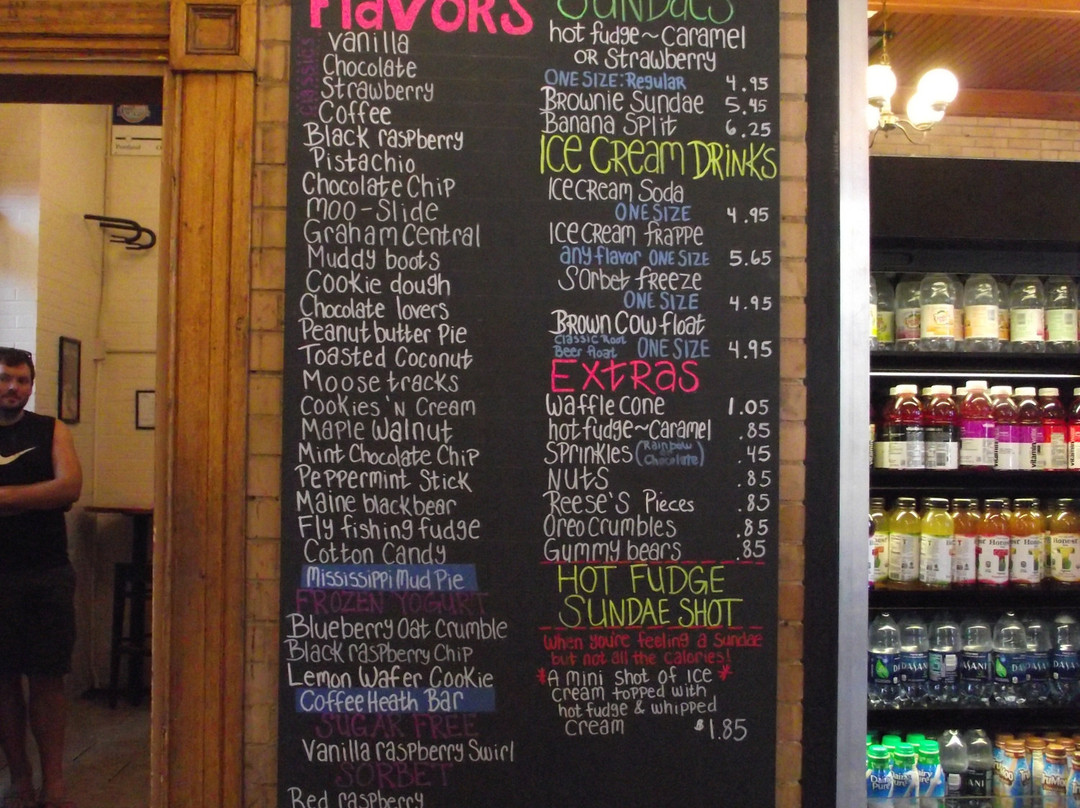 FLavoRS
CLASSICS
Vanilla
Chocolate
Strawberry
Coffee
Black raspberry
Pistachio
Chocolate Chip
Moo-Slide
Graham Central
Muddy boots
Cookie dough
Chocolate lovers
Peanut butter Pie
Toasted Coconut
Moose tracks
Cookies 'n Cream
Maple Walnut
Mint Chocolate Chip
Peppermint Stick
Maine blackbear
Fly fishing fudge
Cotton Candy
Mississippi Mud Pie
FROZEN YOGURT
Blueberry Oat Crumble
Black raspberry Chip
Lemon Wafer Cookie
Coffee Heath Bar
SUGAR FREE
Vanilla raspberry Swirl
SORBET
Red raspberry
SUNDaeS
hot fudge~Caramel
OR Strawberry
ONE SIZE: Regular 4.95
Brownie Sundae 5.45
Banana Split 6.25
ICE CREAM DRINKS
Ice Cream Soda
ONE SIZE 4.95
Ice Cream frappe
any flavor ONE SIZE 5.65
Sorbet freeze
ONE SIZE 4.95
Brown Cow float
Classic Root
Beer float ONE SIZE 4.95
EXtRAS
Waffle Cone 1.05
hot fudge~Caramel .85
Sprinkles (Rainbow or Chocolate) .45
NUtS .85
Reese's Pieces .85
Oreo Crumbles .85
Gummy bears .85
HOT FUDGE
SUNDAE SHOT
When you're feeling a Sundae
but not all the calories!
*A mini shot of ice *
cream topped with
hot fudge & whipped
cream $1.85
DASANI
DASANI
Dairy
Pure
Honest